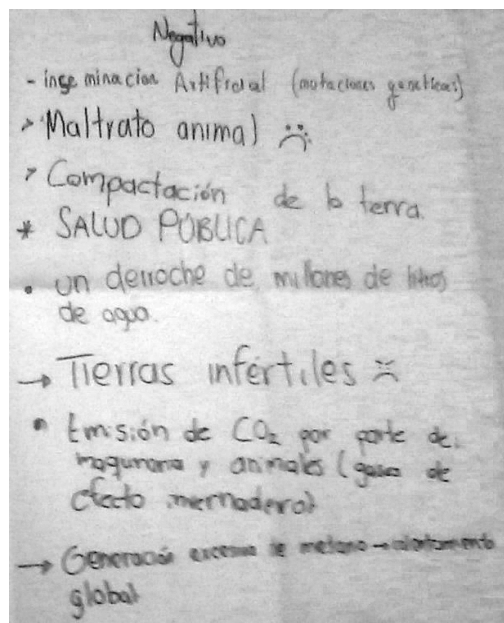 Negativo
- inseminacion Artificial (mutaciones geneticas)
> Maltrato animal
> Compactación de la tierra.
* SALUD PÚBLICA
• un derroche de millones de litros
de agua.
→ Tierras infértiles
• Emisión de CO₂ por parte de
maquinaria y animales (gases de
efecto invernadero)
→ Generación excesiva de metano → calentamiento
global